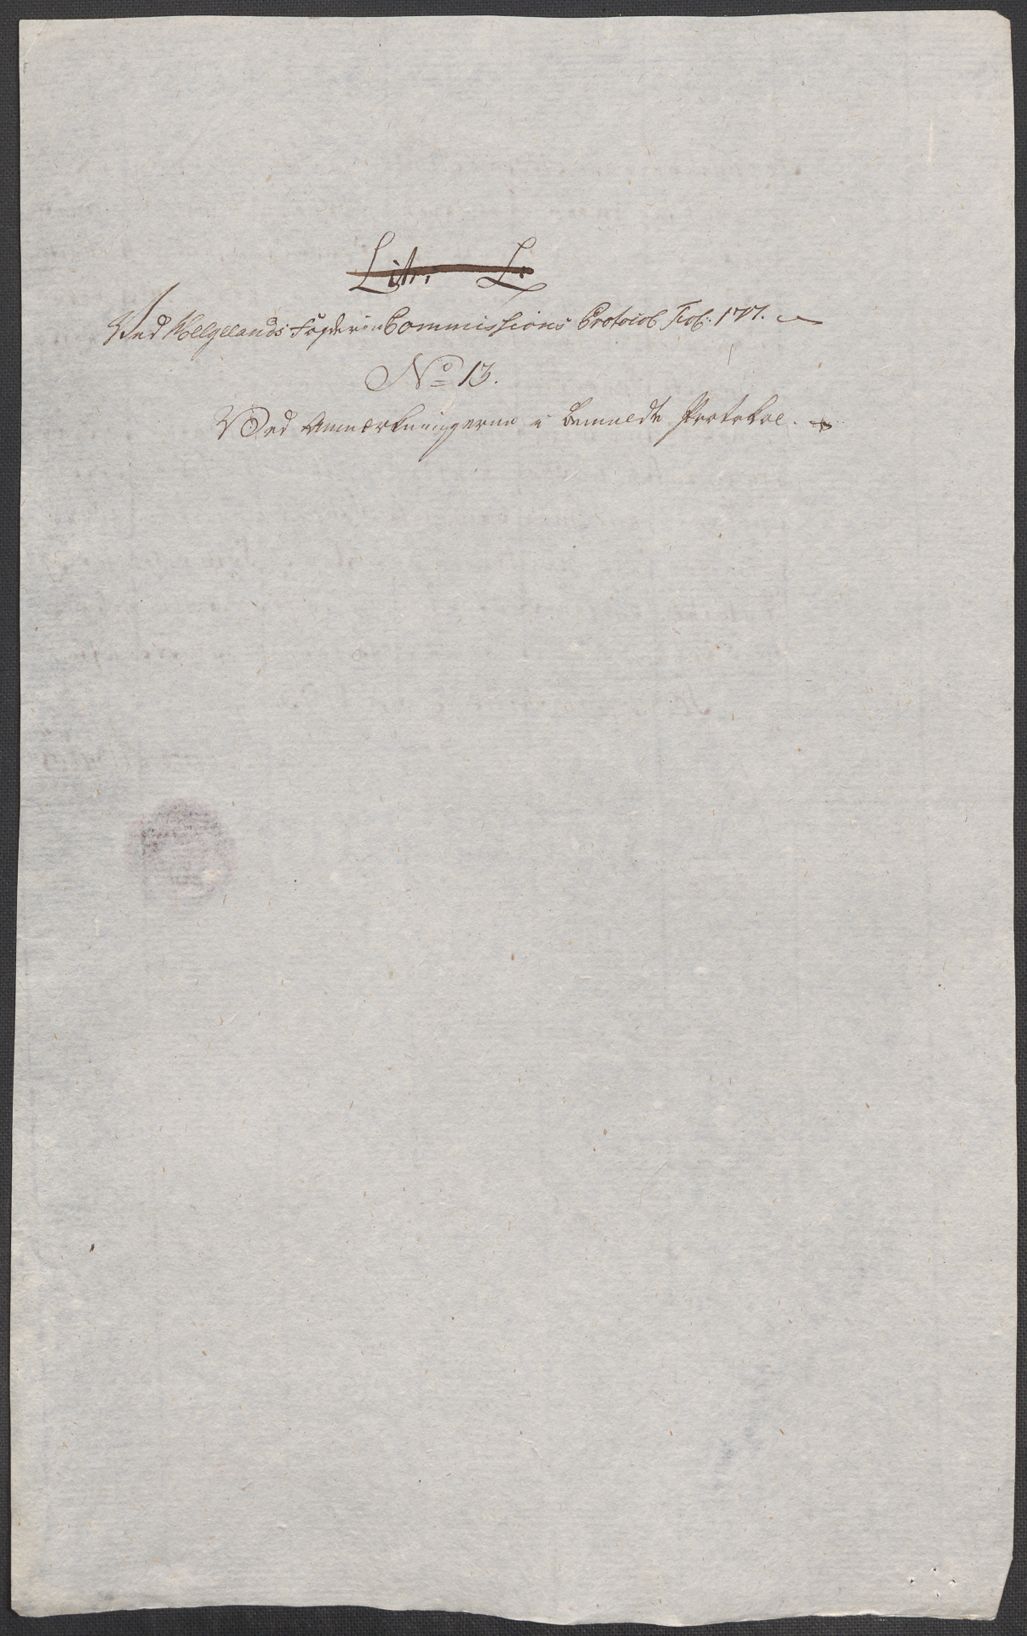 Litr: L:
Ved Helgelands Fogderie Commissions Protocol Fol: 177.
No 13.
Ved Anmærkningerne i bemeldte Protokol.